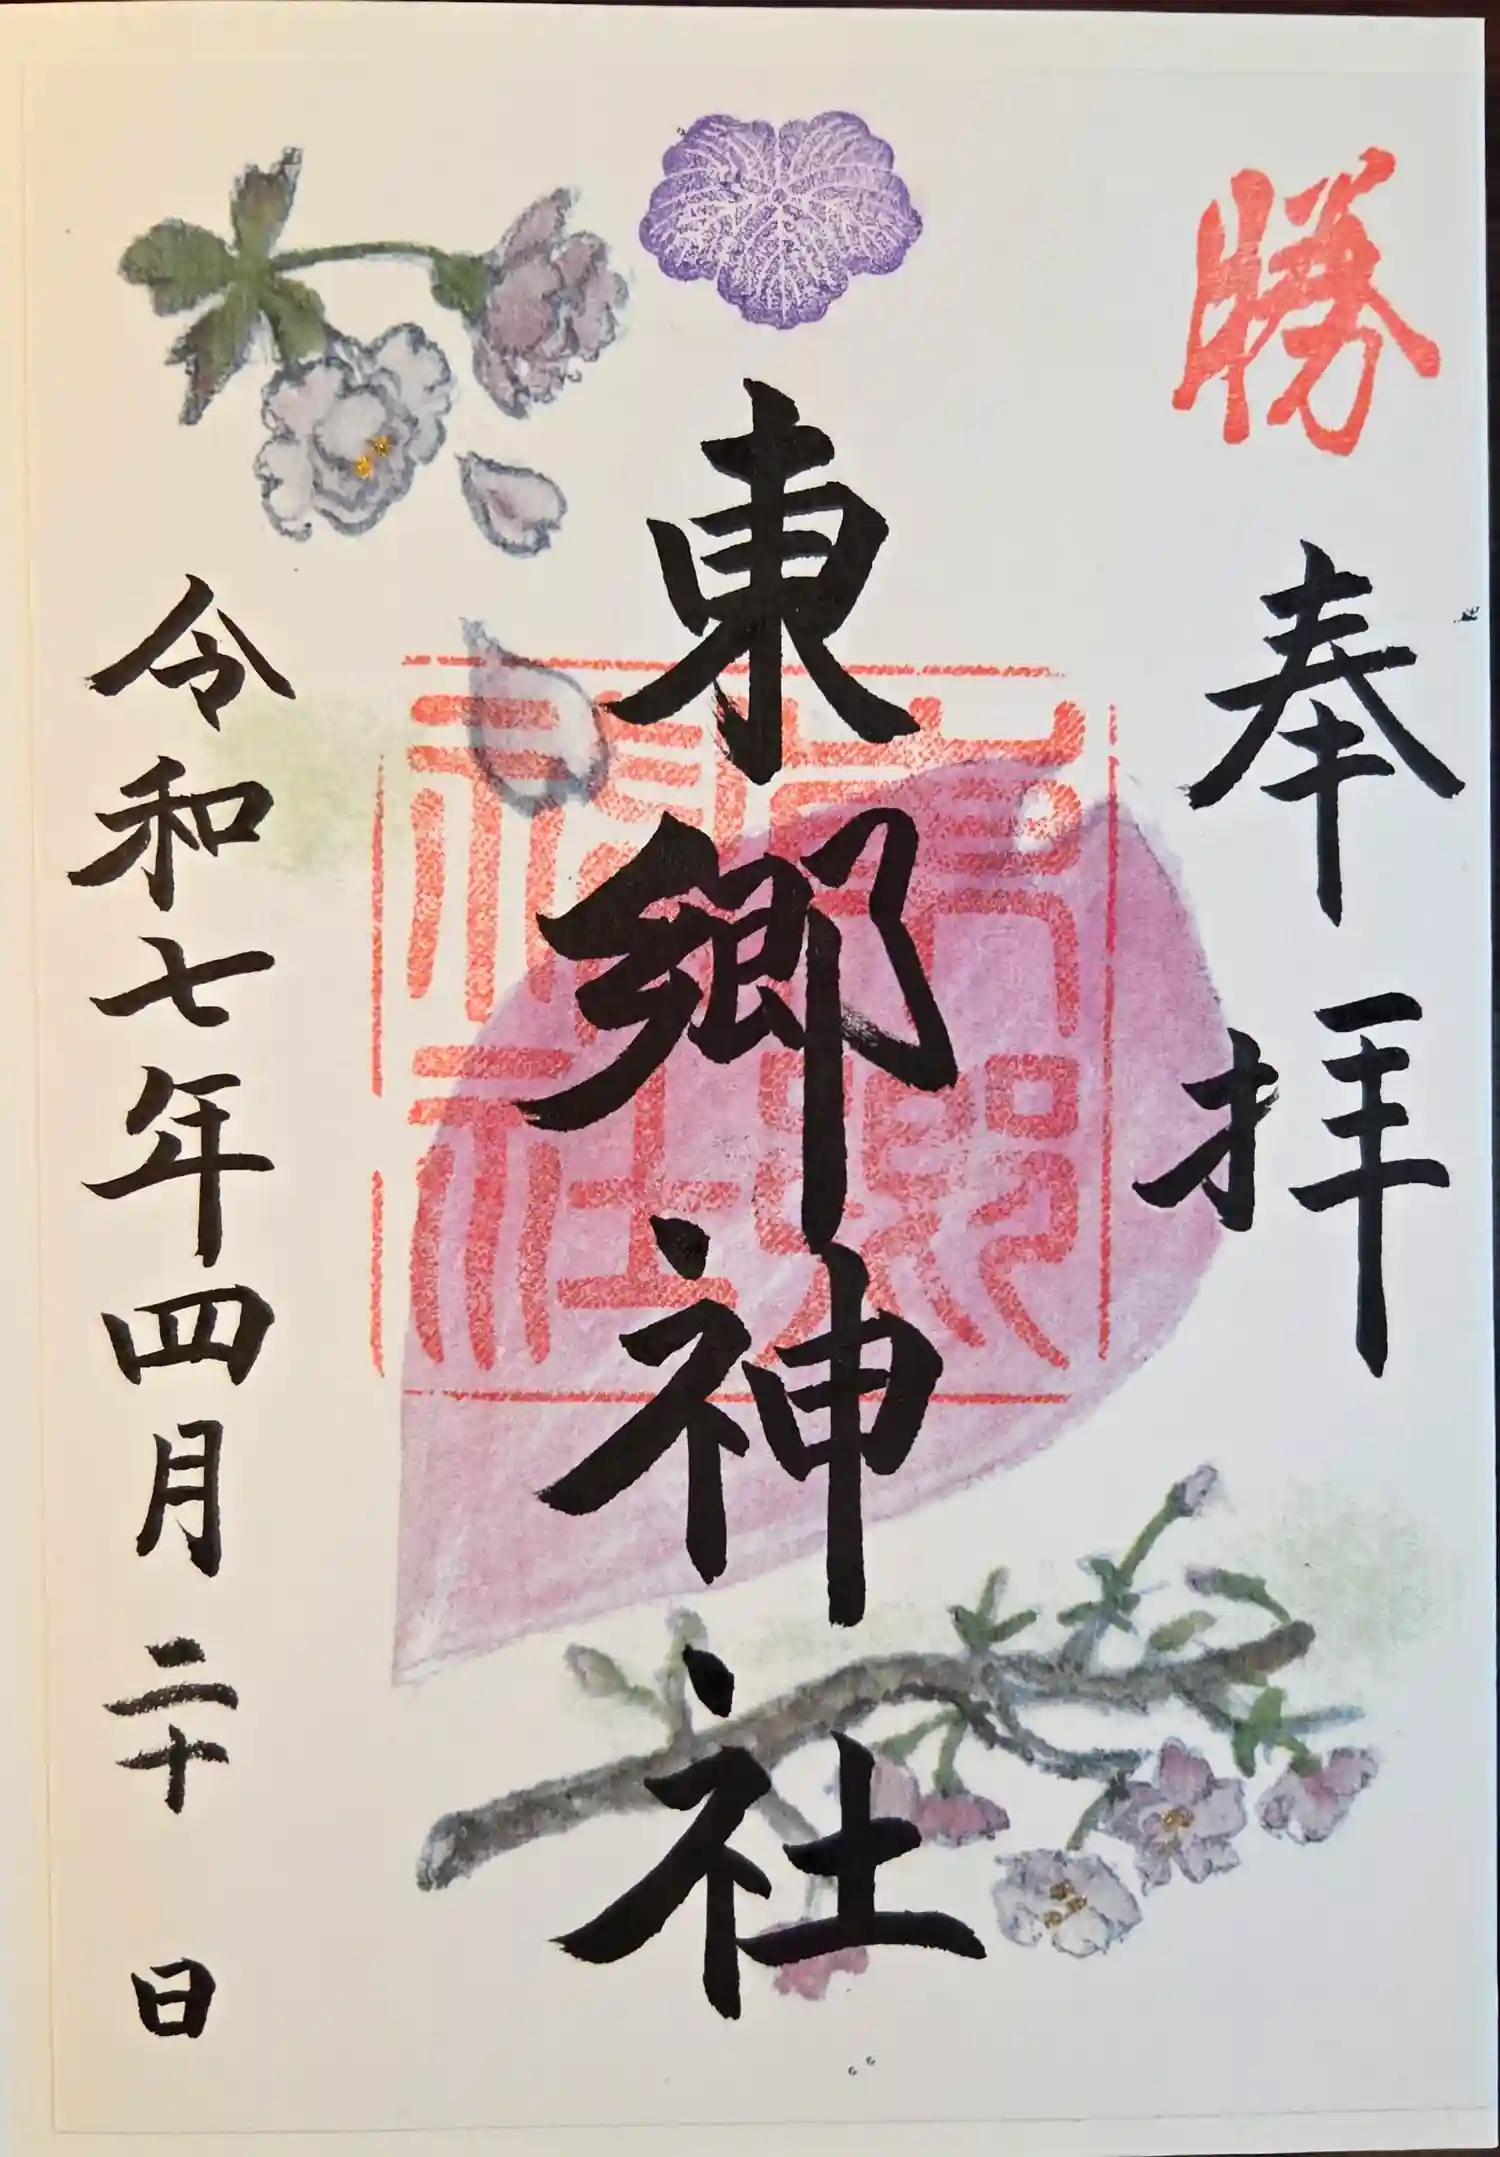 勝
奉拝
東郷神社
東郷神社
令和七年四月二十日